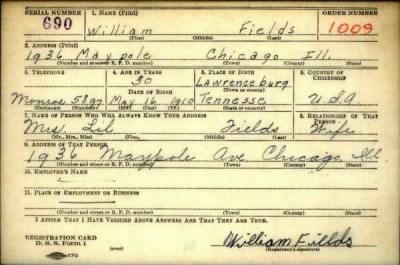 SERIAL NUMBER 1. NAME (Print) ORDER NUMBER
690 William Fields 1009
(First) (Middle) (Last)
2. ADDRESS (Print)
1936 Maypole Chicago Ill.
(Number and street or R. F. D. number) (Town) (County) (State)
3. TELEPHONE 4. AGE IN YEARS 5. PLACE OF BIRTH 6. COUNTRY OF CITIZENSHIP
30 Lawrenceburg
DATE OF BIRTH (Town or county)
Monroe 5897 May 16 1910 Tennesse U.S.A
(Exchange) (Number) (Mo.) (Day) (Yr.) (State or country)
7. NAME OF PERSON WHO WILL ALWAYS KNOW YOUR ADDRESS 8. RELATIONSHIP OF THAT PERSON
Mrs. Lil Fields Wife
(Mr., Mrs., Miss) (First) (Middle) (Last)
9. ADDRESS OF THAT PERSON
1936 Maypole Ave Chicago Ill.
(Number and street or R. F. D. number) (Town) (County) (State)
10. EMPLOYER'S NAME
11. PLACE OF EMPLOYMENT OR BUSINESS
(Number and street or R. F. D. number) (Town) (County) (State)
I AFFIRM THAT I HAVE VERIFIED ABOVE ANSWERS AND THAT THEY ARE TRUE.
REGISTRATION CARD
D. S. S. Form 1 (over) William Fields
(Registrant's signature)